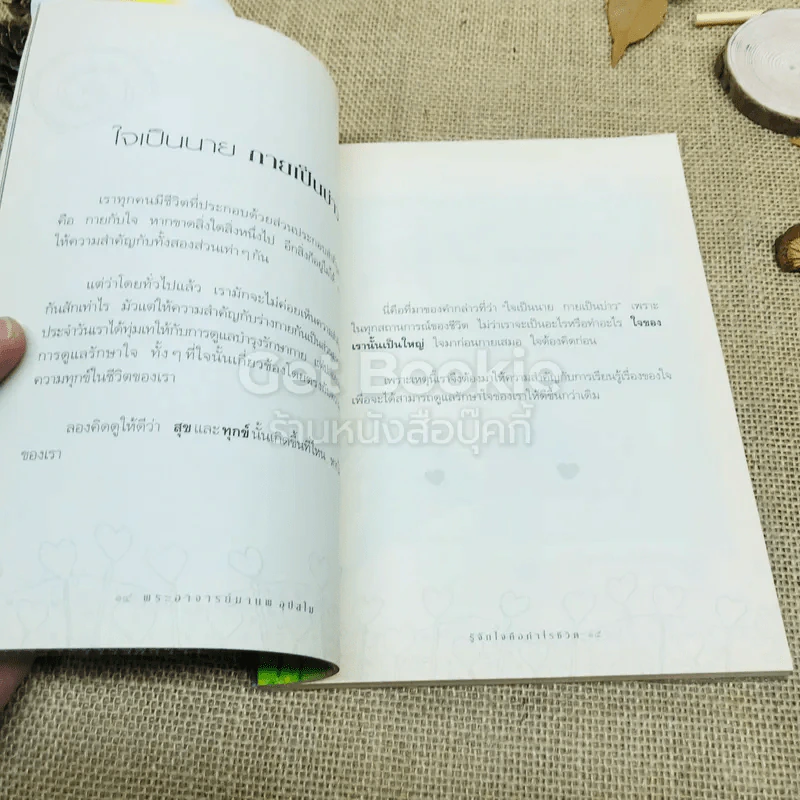 ใจเป็นนาย กายเป็นบ่าว
เราทุกคนมีชีวิตที่ประกอบด้วยส่วนประกอบสำ
คือ กายกับใจ หากขาดสิ่งใดสิ่งหนึ่งไป อีกสิ่งก็อยู่ไม่ได้
ให้ความสำคัญกับทั้งสองส่วนเท่าๆ กัน
แต่ว่าโดยทั่วไปแล้ว เรามักจะไม่ค่อยเห็นความ
กันสักเท่าไร มัวแต่ให้ความสำคัญกับร่างกายกันเป็นส่วน
ประจำวันเราได้ทุ่มเทให้กับการดูแลบำรุงรักษากาย
การดูแลรักษาใจ ทั้งๆ ที่ใจนั้นเกี่ยวข้องโดยตรงกับ
ความทุกข์ในชีวิตของเรา
ลองคิดดูให้ดีว่า สุข และ ทุกข์ นั้นเกิดขึ้นที่ไหน
ของเรา
๑๔ พระอาจารย์มานพ อุปสโม
นี่คือที่มาของคำกล่าวที่ว่า "ใจเป็นนาย กายเป็นบ่าว" เพราะ
ในทุกสถานการณ์ของชีวิต ไม่ว่าเราจะเป็นอะไรหรือทำอะไร ใจของ
เรานั้นเป็นใหญ่ ใจมาก่อนกายเสมอ ใจต้องคิดก่อน
เพราะเหตุนี้เราจึงต้องมาให้ความสำคัญกับการเรียนรู้เรื่องของใจ
เพื่อจะได้สามารถดูแลรักษาใจของเราให้ดีขึ้นกว่าเดิม
รู้จักใจคือกำไรชีวิต ๑๕
Get Bookie
ร้านหนังสือบุ๊คกี้